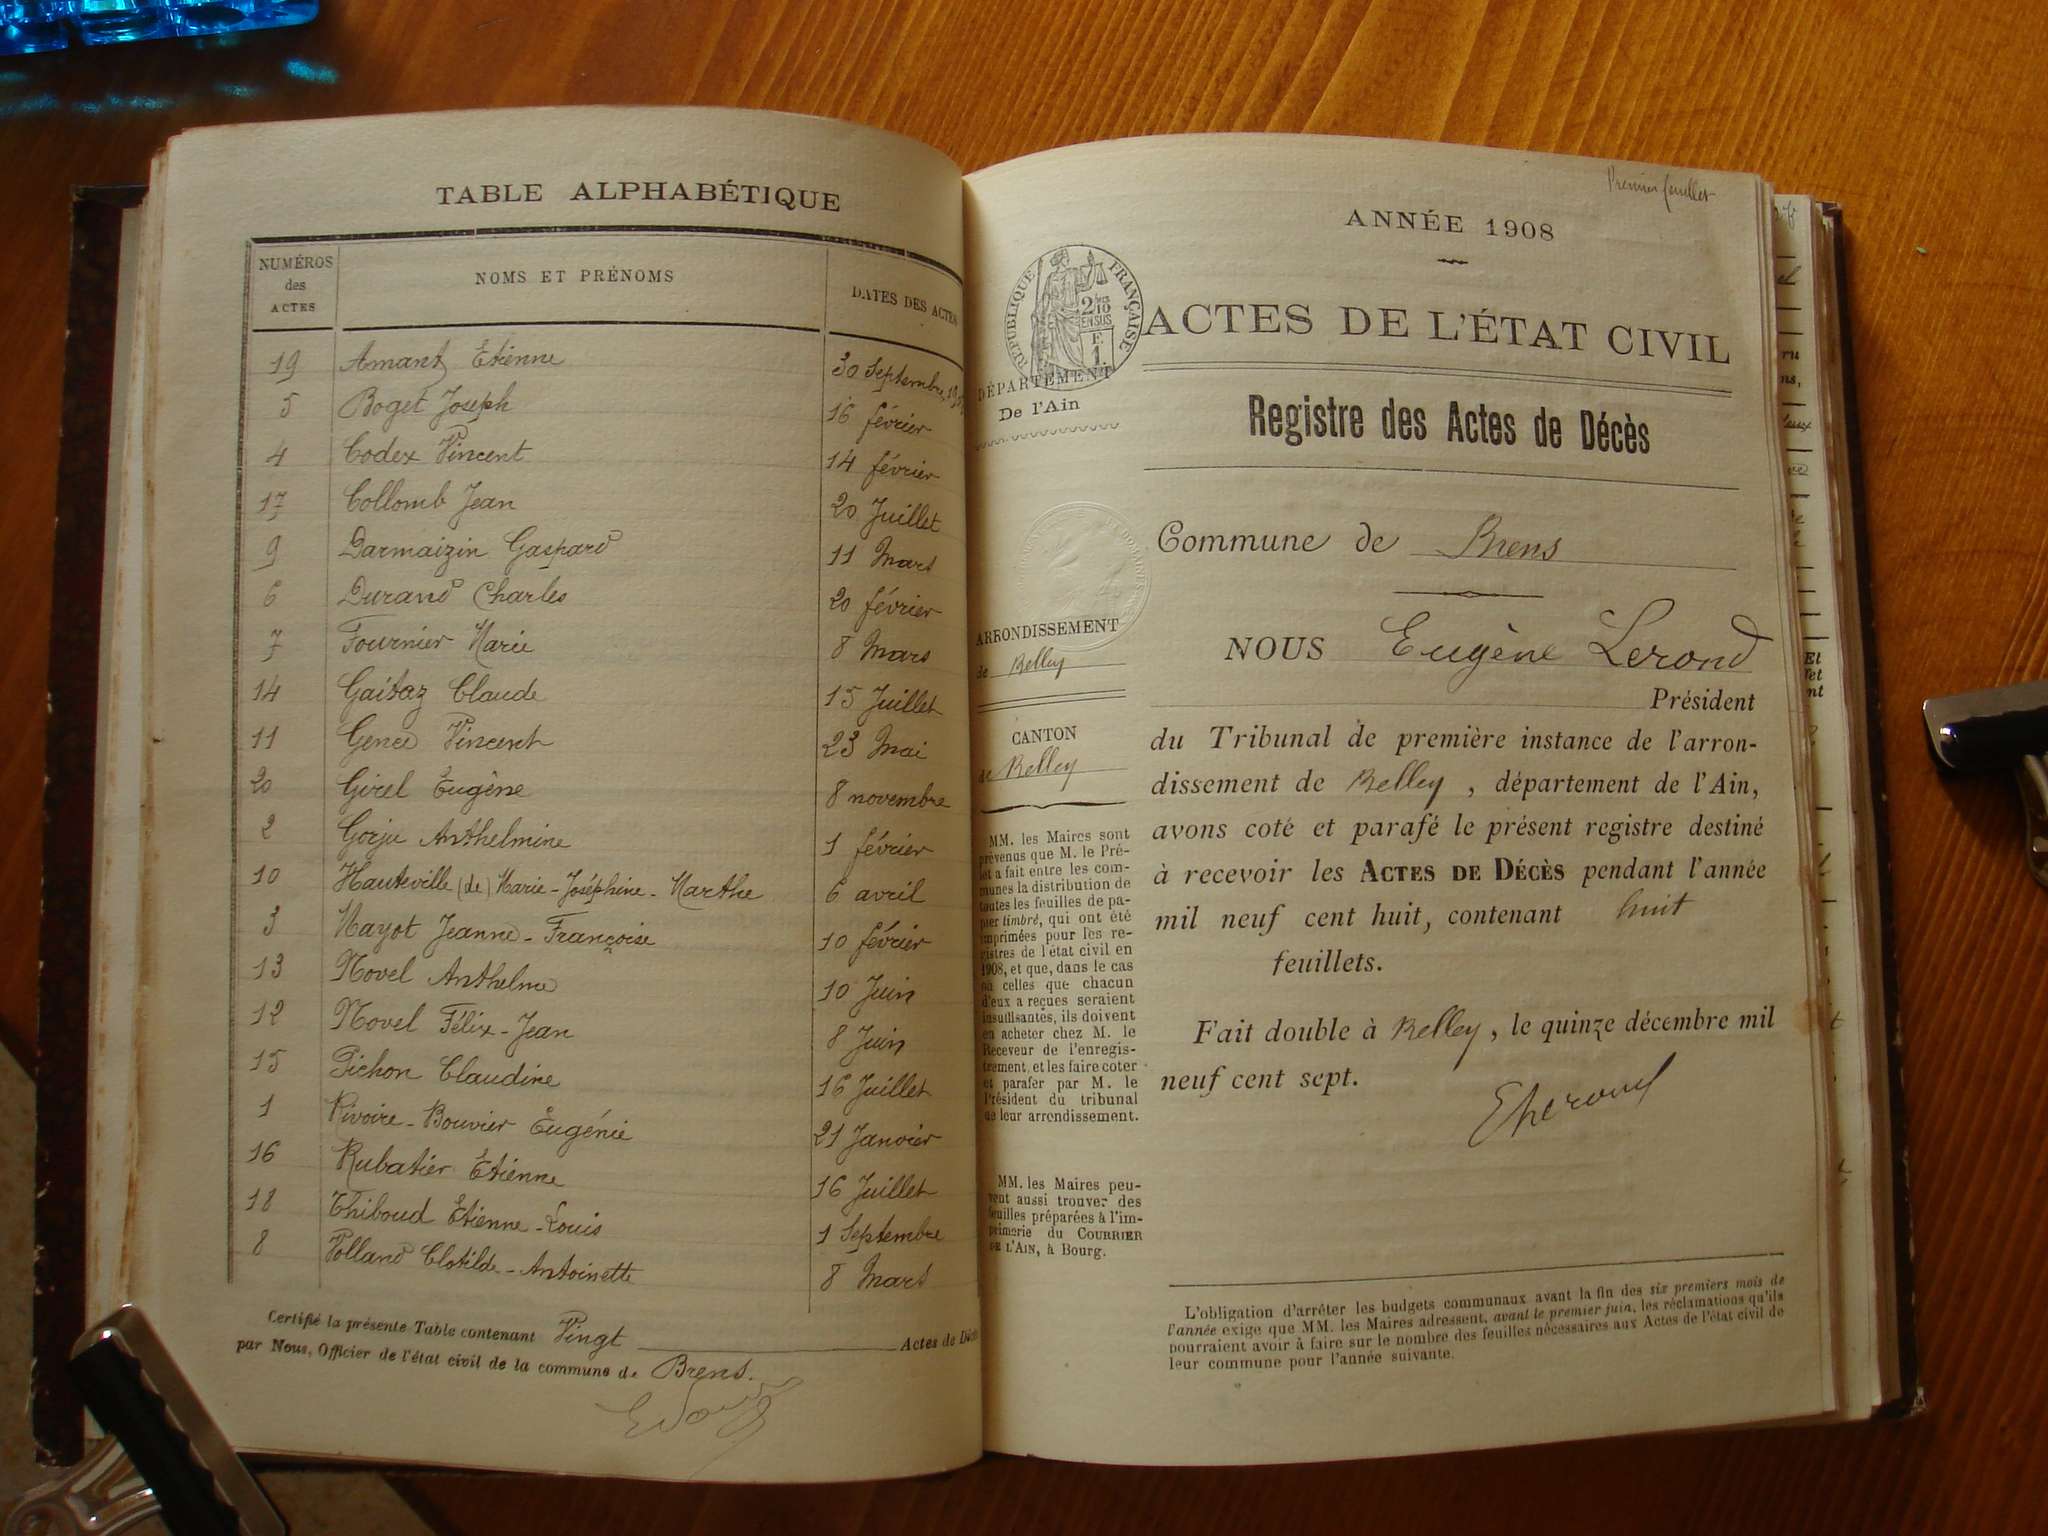 TABLE ALPHABÉTIQUE
NUMÉROS des ACTES
NOMS ET PRÉNOMS
DATES DES ACTES
19 Amant Etienne 30 Septembre
5 Boget Joseph 16 février
4 Codex Vincent 14 février
17 Collomb Jean 20 Juillet
9 Darmaizin Gaspard 11 Mars
6 Durand Charles 20 février
7 Fournier Marie 8 Mars
14 Gaitaz Claude 15 Juillet
11 Gence Vincent 23 Mai
20 Girel Eugène 8 novembre
2 Gorju Anthelmine 1 février
10 Hauteville (de) Marie-Joséphine-Marthe 6 avril
3 Mayot Jeanne-Françoise 10 février
13 Novel Anthelme 10 Juin
12 Novel Félix-Jean 8 Juin
15 Pichon Claudine 16 Juillet
1 Rivoire-Bouvier Eugénie 21 Janvier
16 Rubatier Etienne 16 Juillet
18 Thiboud Etienne-Louis 1 Septembre
8 Volland Clotilde-Antoinette 8 Mars
Certifié la présente Table contenant Vingt Actes de Décès
par Nous, Officier de l'état civil de la commune de Brens.
Premier feuillet
ANNÉE 1908
RÉPUBLIQUE FRANÇAISE
2/10 EN SUS
F. 1.
ACTES DE L'ÉTAT CIVIL
DÉPARTEMENT
De l'Ain
Registre des Actes de Décès
Commune de Brens
ARRONDISSEMENT
de Belley
CANTON
de Belley
NOUS Eugène Lerond
Président
du Tribunal de première instance de l'arron-
dissement de Belley, département de l'Ain,
avons coté et parafé le présent registre destiné
à recevoir les ACTES DE DÉCÈS pendant l'année
mil neuf cent huit, contenant huit
feuillets.
Fait double à Belley, le quinze décembre mil
neuf cent sept.
MM. les Maires sont
prévenus que M. le Pré-
fet a fait entre les com-
munes la distribution de
toutes les feuilles de pa-
pier timbré, qui ont été
imprimées pour les re-
gistres de l'état civil en
1908, et que, dans le cas
où celles que chacun
d'eux a reçues seraient
insuffisantes, ils doivent
en acheter chez M. le
Receveur de l'enregis-
trement, et les faire coter
et parafer par M. le
Président du tribunal
de leur arrondissement.
MM. les Maires peu-
vent aussi trouver des
feuilles préparées à l'im-
primerie du COURRIER
DE L'AIN, à Bourg.
L'obligation d'arrêter les budgets communaux avant la fin des six premiers mois de
l'année exige que MM. les Maires adressent, avant le premier juin, les réclamations qu'ils
pourraient avoir à faire sur le nombre des feuilles nécessaires aux Actes de l'état civil de
leur commune pour l'année suivante.